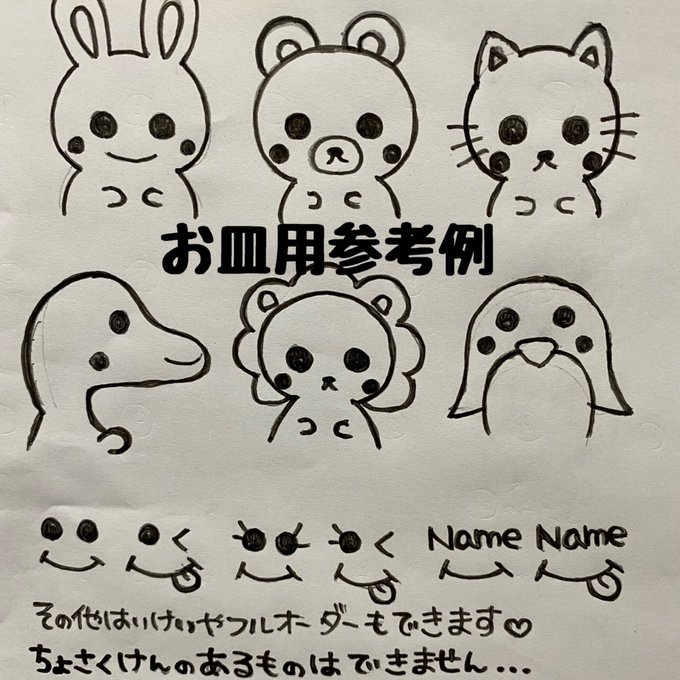 お皿用参考例
Name Name
その他はいけいやフルオーダーもできます♡
ちょさくけんのあるものはできません...